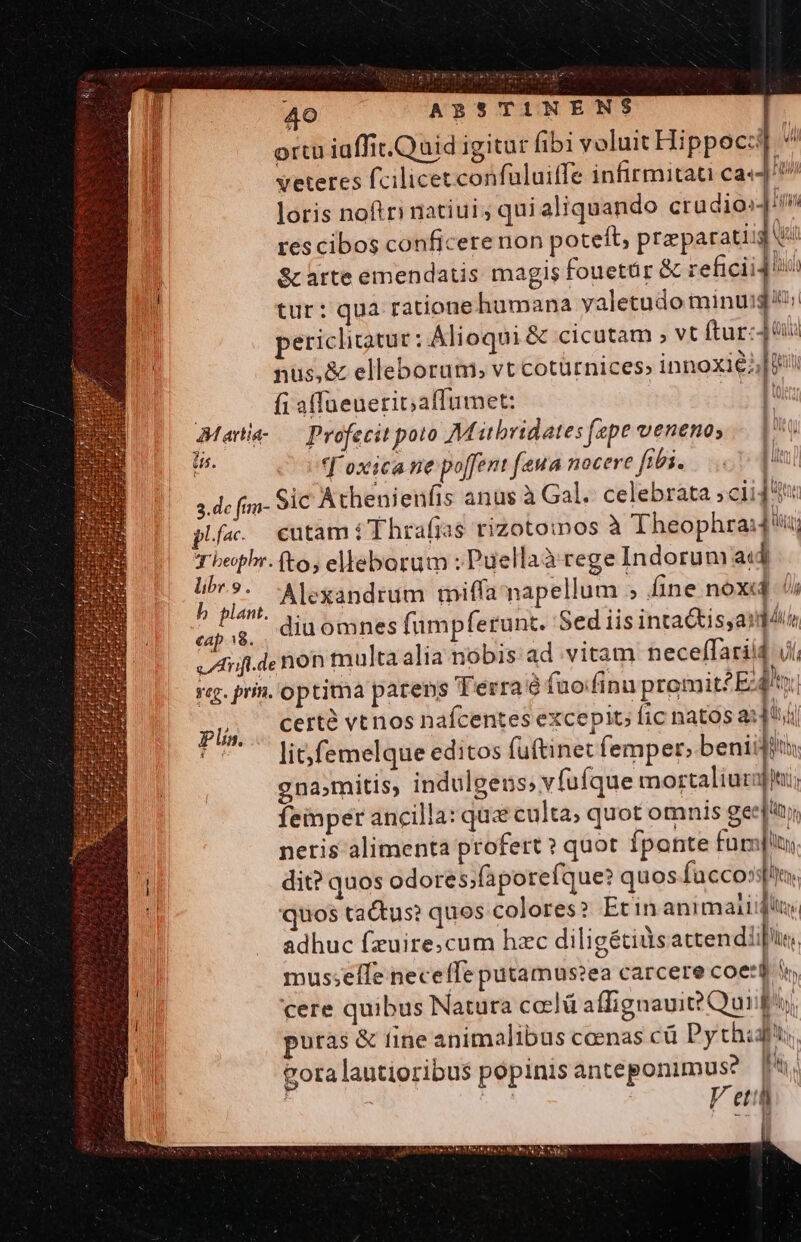 40 ABSTINENS
ortu iaſſit. Quid igitur ſibi voluit Hippoc:
veteres ſcilicet conſuluiſſe infirmitati ca-
loris noſtri natiui, qui aliquando crudio-
res cibos conficere non poteſt, præparati
& arte emendatis magis fouetur & reficii
tur: qua ratione humana valetudo minu
periclitatur: Alioqui & cicutam, vt ſtur-
nus, & elleborum, vt coturnices, innoxiè
ſi aſſueuerit, aſſumet:
Martia- Profecit poto Mithridates ſæpe veneno,
lis. Toxica ne poſſent ſæua nocere ſibi.
3. de ſim- Sic Athenienſis anus à Gal. celebrata, ci
pl. fac. cutam: Thraſias rizotomos à Theophra
Theophr. ſto, elleborum: Puella à rege Indorum ad
libr 9. Alexandrum miſſa napellum, ſine noxa
h plant. diu omnes ſumpſerunt. Sed iis intactis, an
cap 18.
Ariſt. de non multa alia nobis ad vitam neceſſaria
reg. prin. optima parens Terra è ſuo ſinu promit? E
certè vt nos naſcentes excepit, ſic natos a
Plin. lit, ſemelque editos ſuſtinet ſemper, beni
gna, mitis, indulgens, vſuſque mortalium
ſemper ancilla: quæ culta, quot omnis ge
neris alimenta profert? quot ſponte fun
dit? quos odores, ſaporeſque? quos ſucco
quos tactus? quos colores? Et in animali
adhuc ſæuire, cum hæc diligétiùs attendi
mus, eſſe neceſſe putamus? ea carcere coer
cere quibus Natura cœlū aſſignauit? Qui
puras & ſine animalibus cœnas cū Pytha
gora lautioribus popinis anteponimus?
Veti